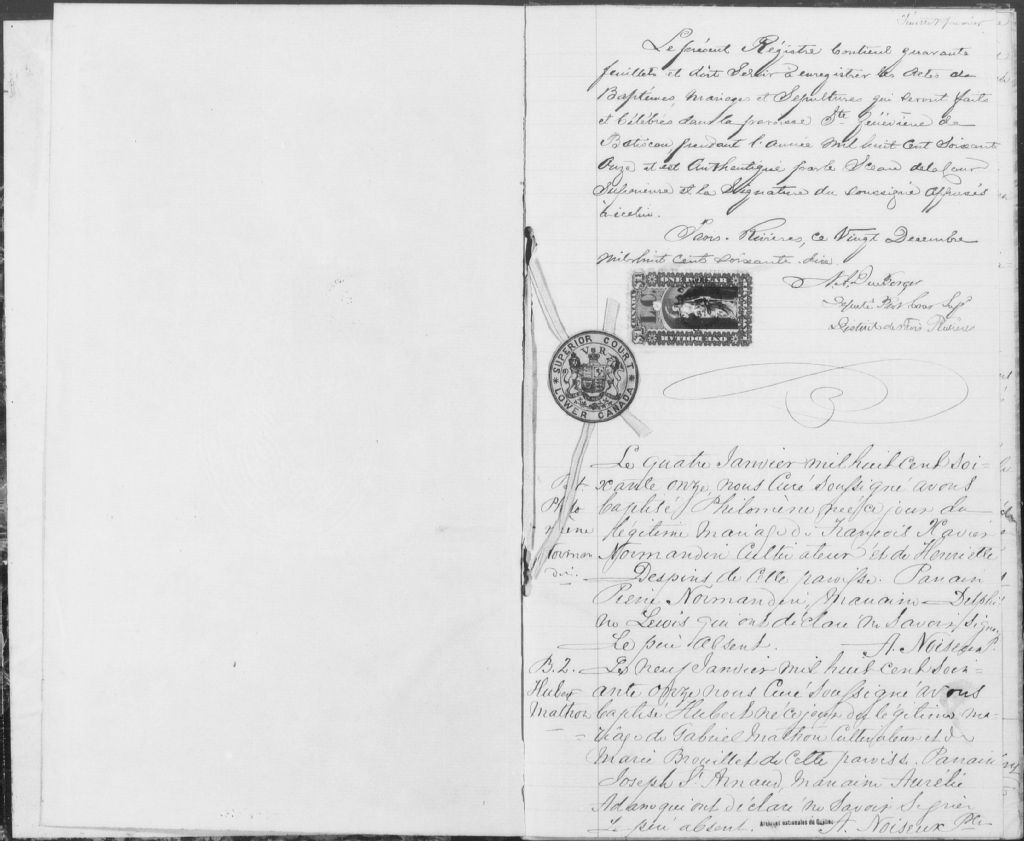 Feuillet premier
Le présent Régistre Contient quarante
feuillets et doit Servir à enregistrer les Actes de
Baptêmes, Mariages et Sépultures qui seront faits
et Célébrés dans la paroisse Ste Généviève de
Batiscan pendant l'Année Mil huit Cent Soixante
Onze et est Authentiqué par le Sceau de la Cour
Supérieure et la Signature du soussigné apposés
à icelui.
Trois-Rivières, ce Vingt Decembre
Mil huit Cent soixante-dix.
Député Prot Cour Supr
District des Trois Rivières
ONE DOLLAR
ONE DOLLAR
SUPERIOR COURT
V R
LOWER CANADA
Le quatre Janvier mil huit cent soi-
xante onze, nous Curé soussigné avons
baptisé Philomène née ce jour du
légitime mariage de François Xavier
Normandin Cultivateur et de Henriette
Despins de cette paroisse. Parrain
Réné Normandin, Marraine Delphi-
ne Lewis qui ont déclaré ne Savoir signer.
Le père absent. A. Noiseux P.
Philo
mène
Norman
din.
B. 2.
Hubert
Mathon
Le neuf Janvier mil huit cent soix-
ante onze nous Curé soussigné avons
baptisé Hubert né ce jour du légitime ma-
riage de Gabriel Mathon Cultivateur et de
Marie Brouillet de cette paroisse. Parrain
Joseph St Arnaud, Marraine Aurélie
Adam qui ont déclaré ne Savoir Signer
Le père absent. A. Noiseux Ptre
Archives nationales du Québec